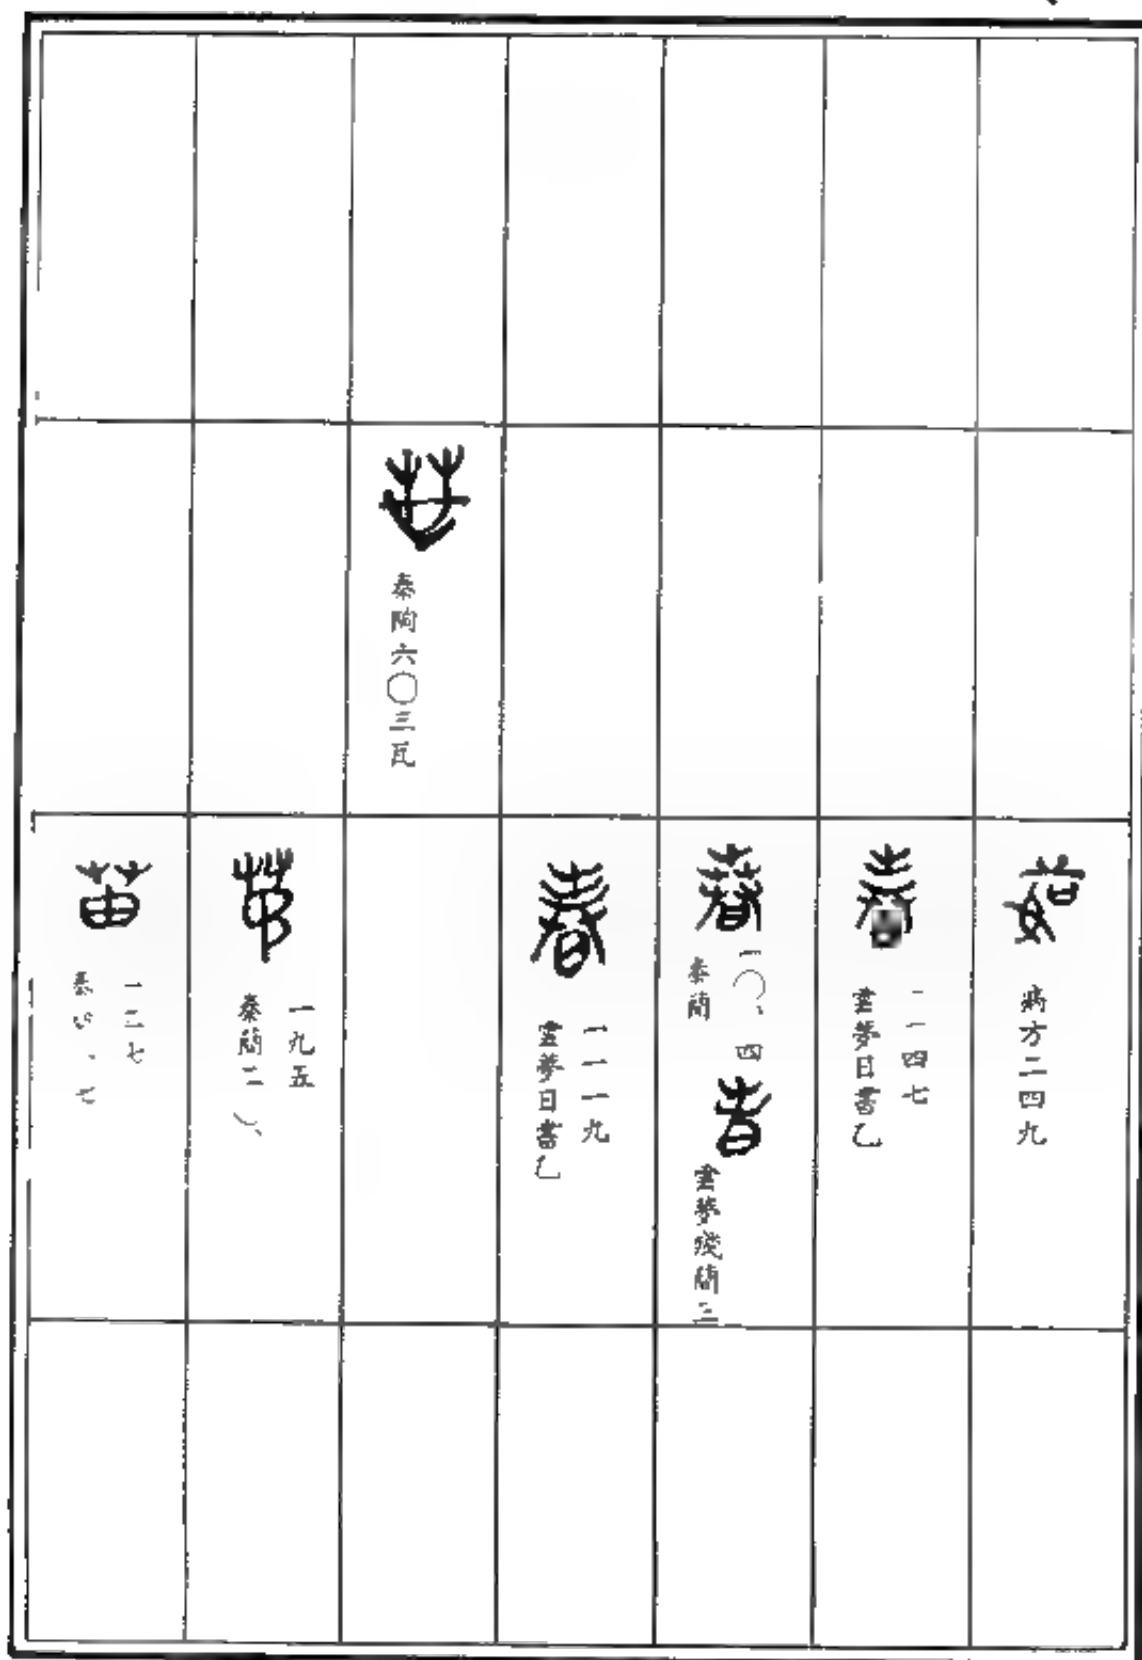 茹
病方二四九
春
雲夢日書乙
二四七
春
秦簡
一〇、四
春
雲夢殘簡三
春
雲夢日書乙
一一一九
秦陶六〇三瓦
秦簡二
一九五
苗
一二七